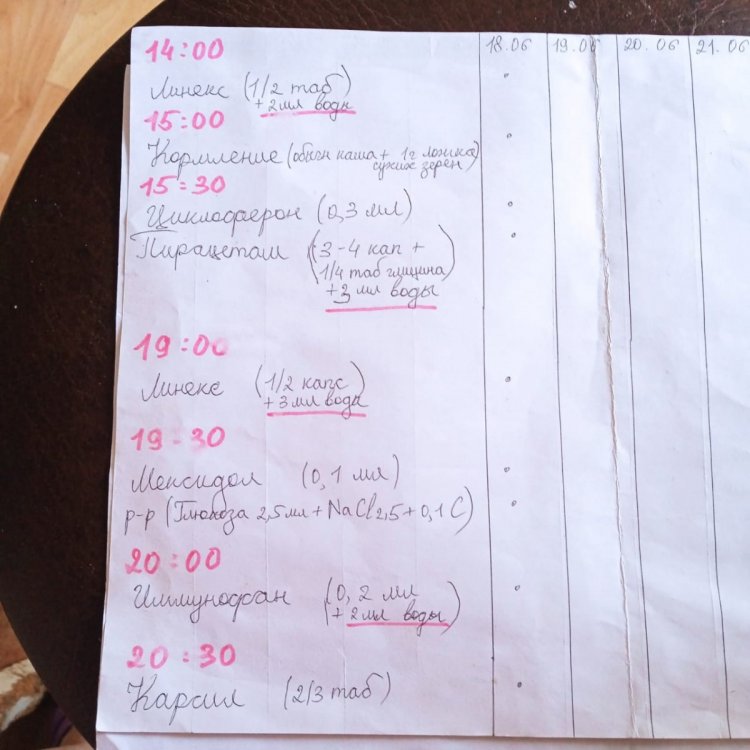 18.06 19.06 20.06 21.06
14:00
Линекс (1/2 таб
+ 2 мл воды
15:00
Кормление (обычн каша + 1г ложка
сухих зерен)
15:30
Циклоферон (0,3 мл)
Пирацетам (3-4 кап +
1/4 таб глицина
+ 3 мл воды)
19:00
Линекс (1/2 капс)
+ 3 мл воды
19-30
Мексидол (0,1 мл)
р-р (Глюкоза 2,5мл + NaCl 2,5 + 0,1 С)
20:00
Иммунофан (0,2 мл
+ 2 мл воды)
20:30
Карсил (2/3 таб)